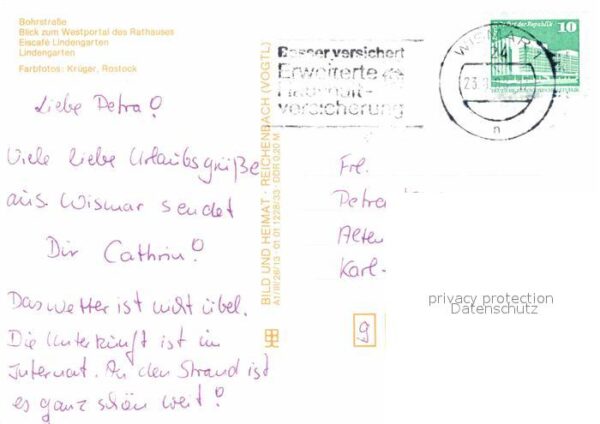 Bohrstraße
Blick zum Westportal des Rathauses
Eiscafé Lindengarten
Lindengarten
Farbfotos: Krüger, Rostock
Liebe Petra!
Viele liebe Urlaubsgrüße
aus Wismar sendet
Dir Cathrin!
Das Wetter ist nicht übel.
Die Unterkunft ist im
Internat. An den Strand ist
es ganz schön weit!
BILD UND HEIMAT · REICHENBACH (VOGTL)
A1/III/26/13 · 01 01 1228/33 · DDR 0,20 M
Besser versichert
Erweiterte
Haushalt-
versicherung
WISMAR 1
24
23.
n
der Republik
10
DDR
Frl.
Petra
Alten
Karl-
privacy protection
Datenschutz